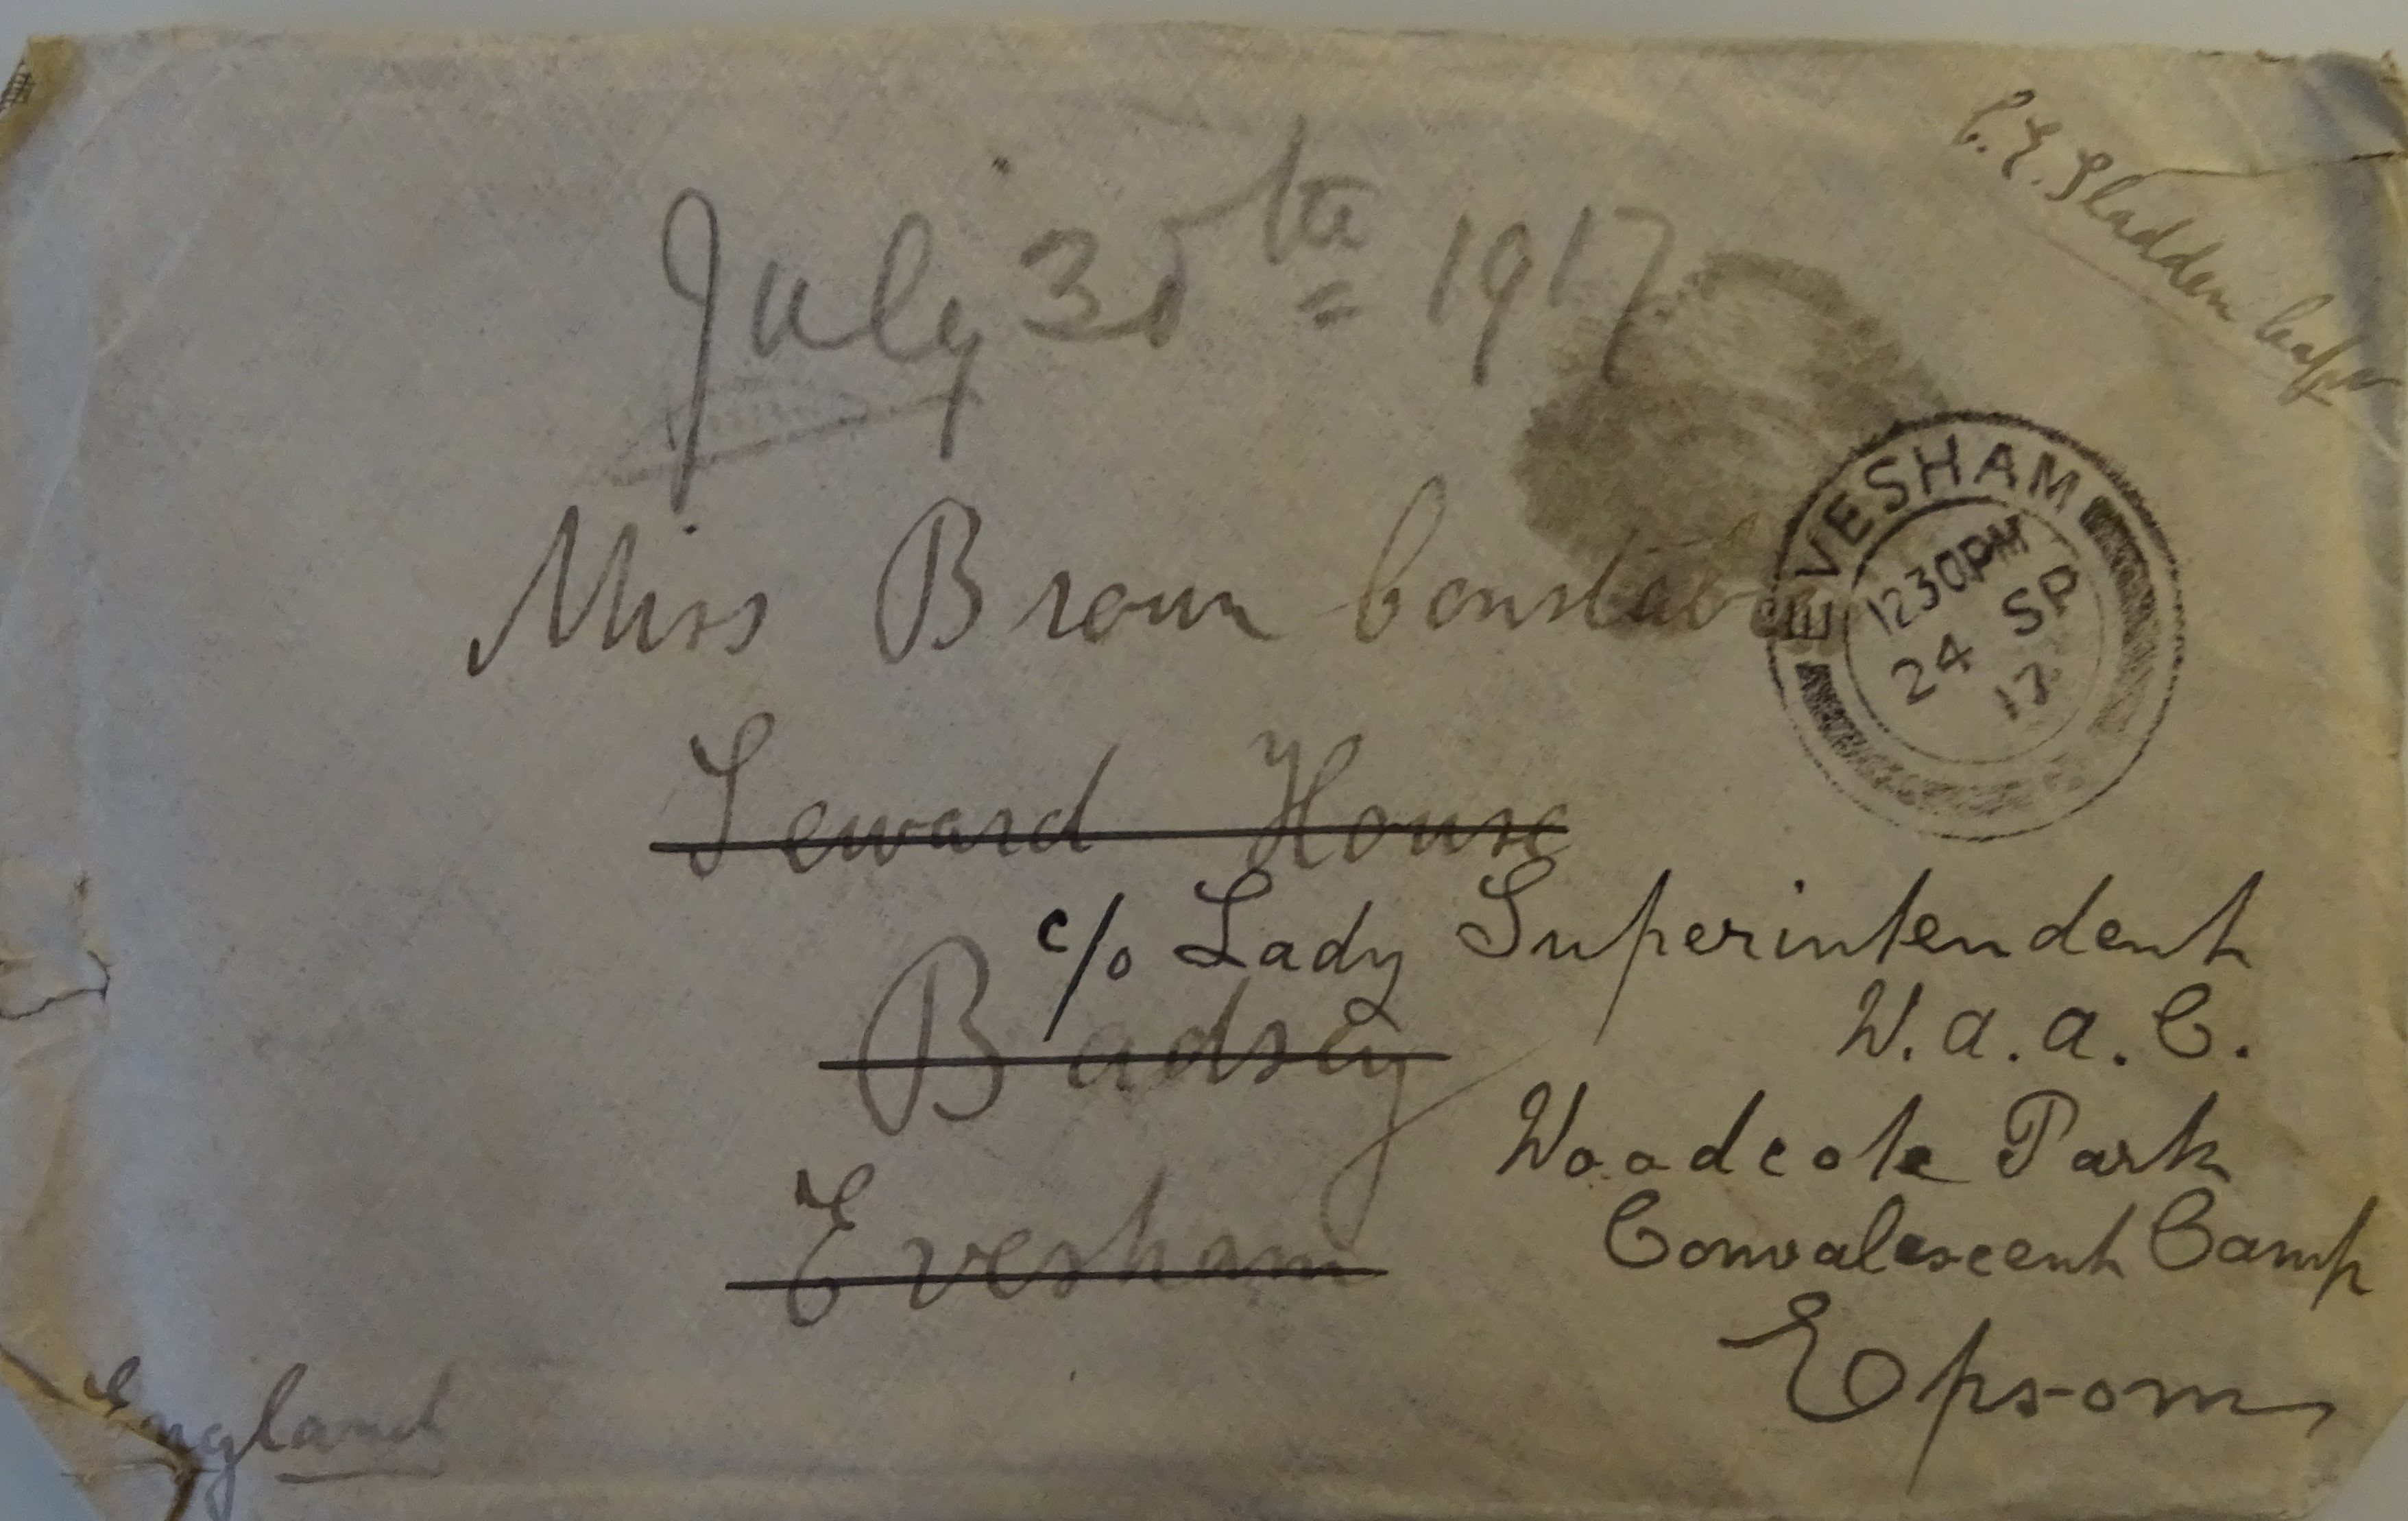 C. E. Sladden Capt
July 30th 1917
Miss Brown Constab
EVESHAM
1230PM
24 SP
17
Seward House
c/o Lady Superintendent
Badsey
W.A.A.C.
Woodcote Park
Evesham
Convalescent Camp
Epsom
England